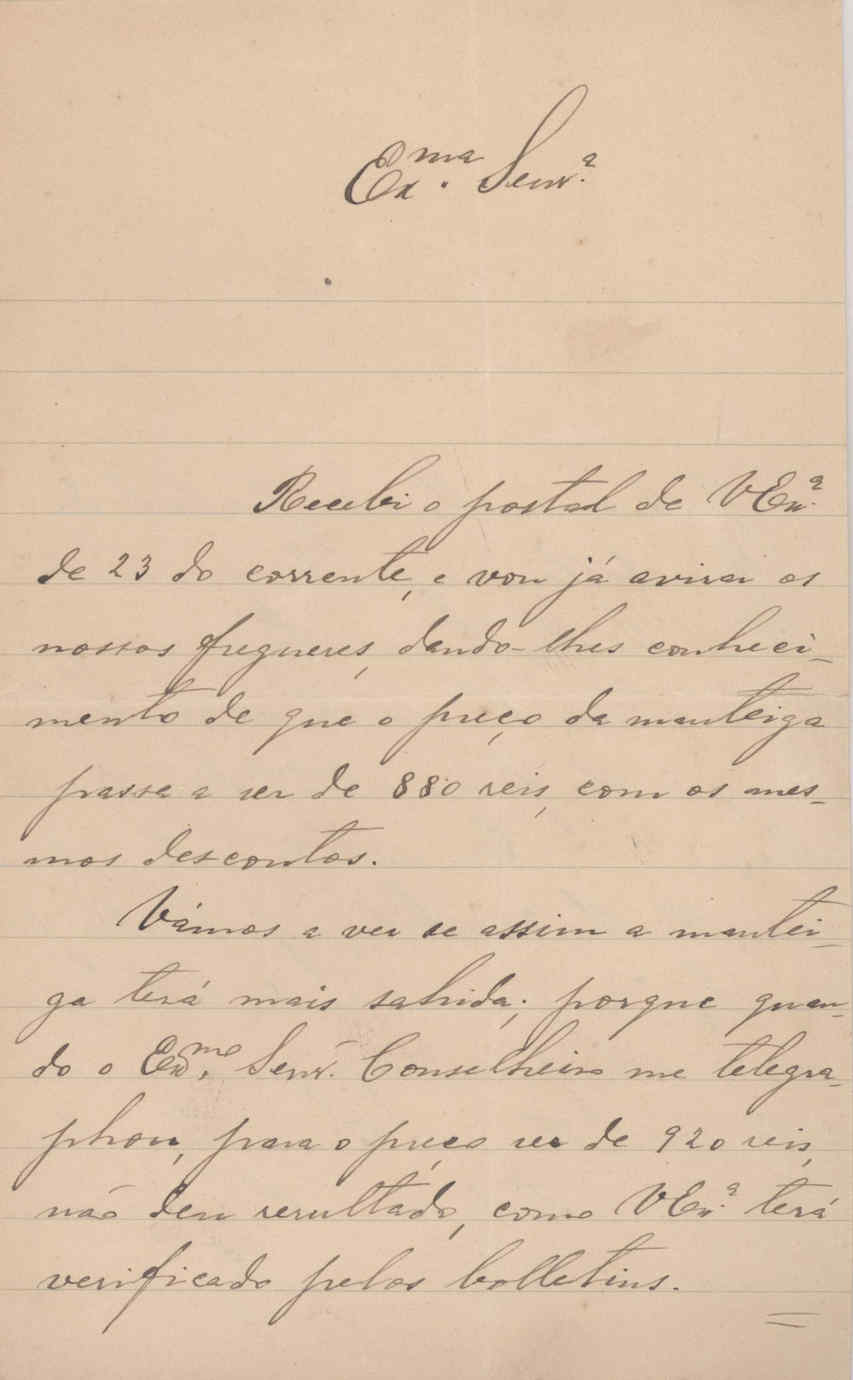 Ex.ma Senr.a
Recebi o postal de VEx.a
de 23 do corrente, e vou já avisar os
nossos freguezes, dando-lhes conheci-
mento de que o preço da manteiga
passa a ser de 880 reis, com os mes-
mos descontos.
Vâmos a ver se assim a mantei-
ga terá mais sahida; porque quan-
do o Ex.mo Senr. Conselheiro me telegra-
phou, para o preço ser de 920 reis,
não deu resultado, como VEx.a terá
verificado pelos bolletins.